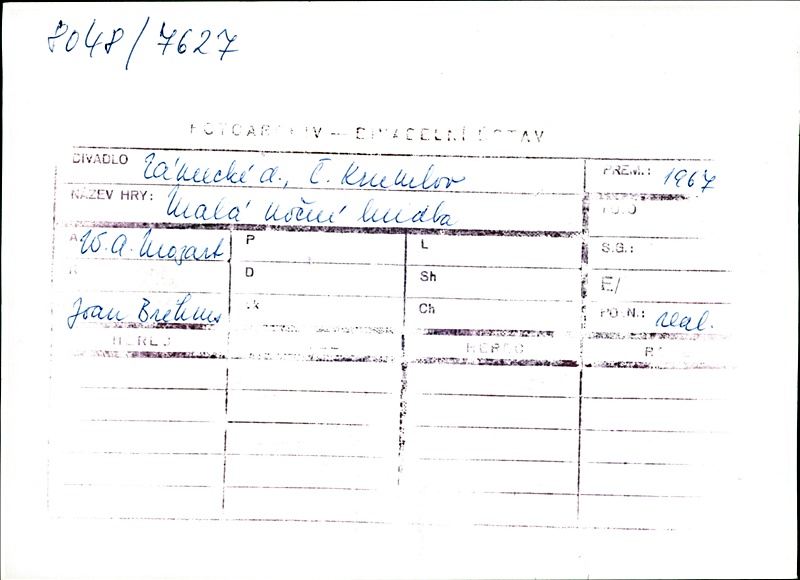 8048/7627
FOTOARCHIV – DIVADELNÍ ÚSTAV
DIVADLO Zámecké d., Č. Krumlov PREM.: 1967
NÁZEV HRY: Malá noční hudba
A W. A. Mozart P L S.G.:
R D Sh E/
Joan Brehms Ch POZN.: real.
HEREC HEREC